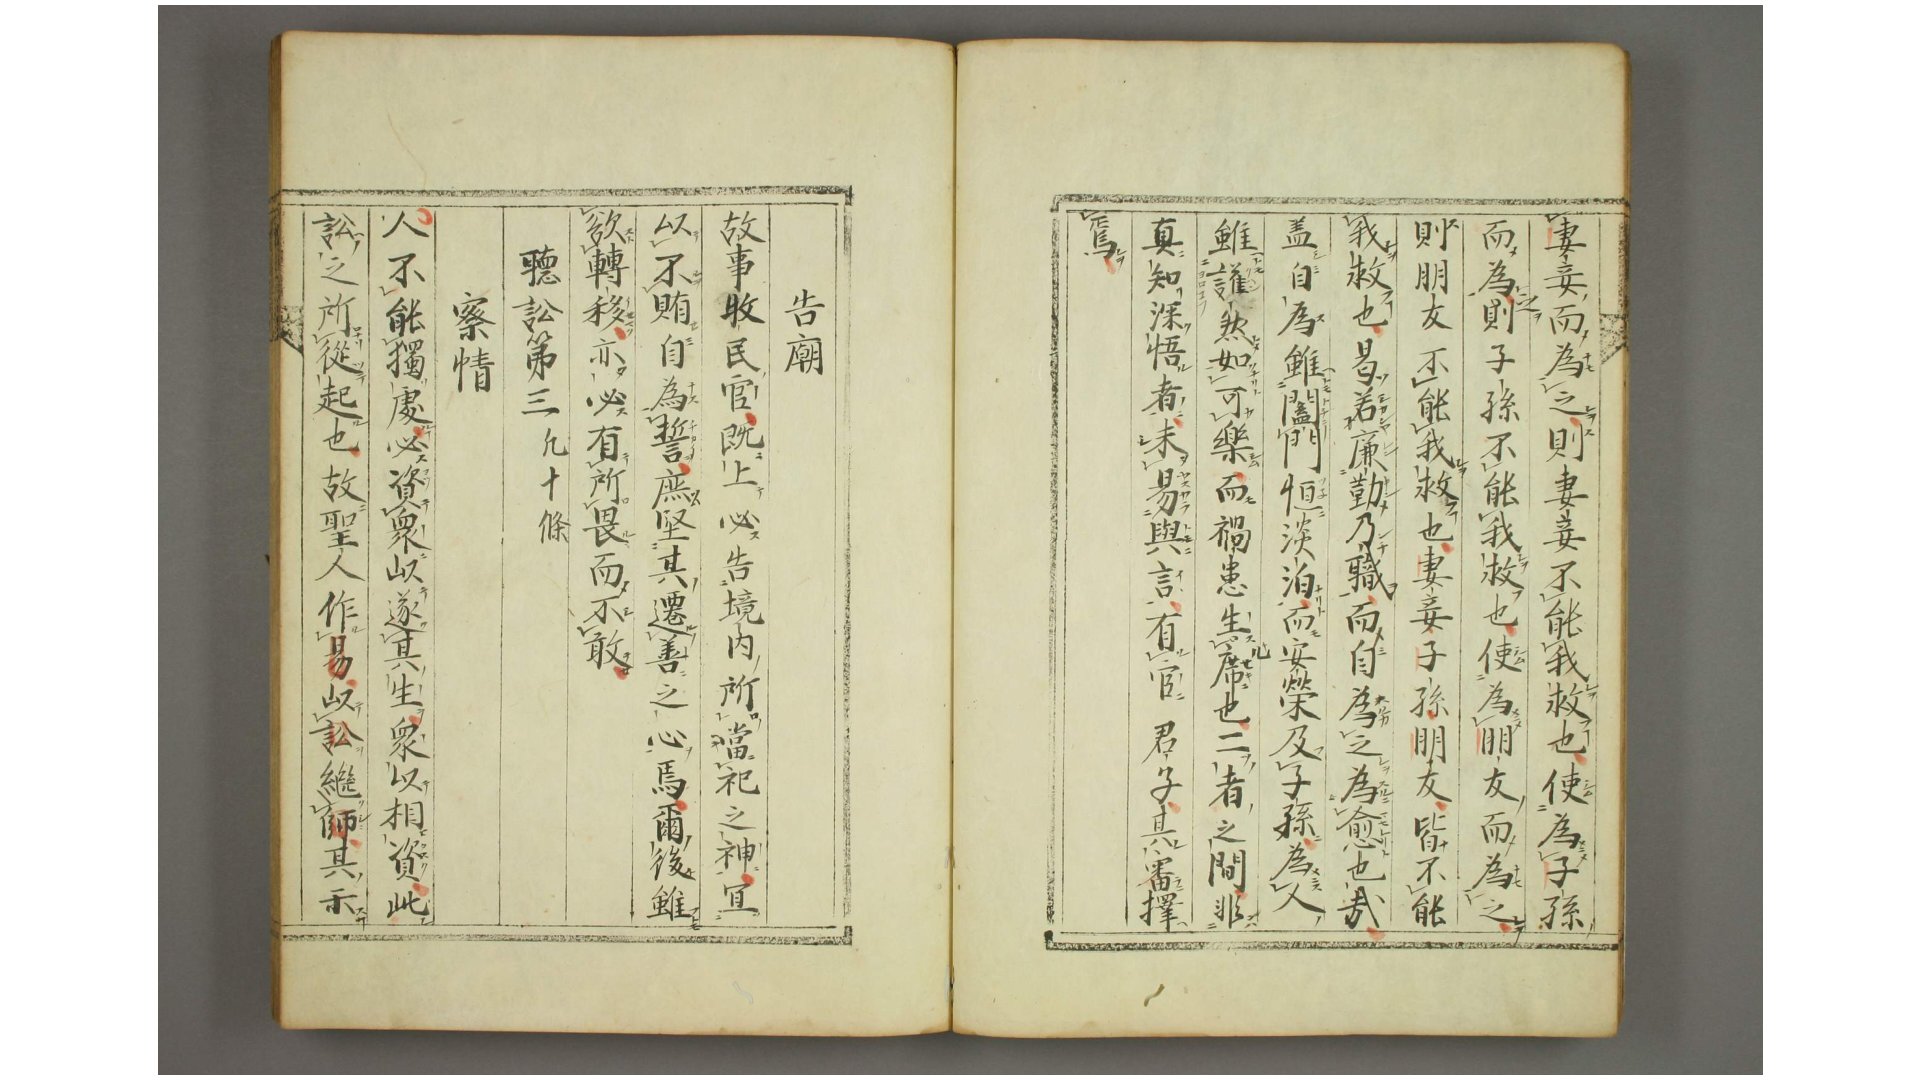 妻妾而為之則妻妾不能我救也使為子孫
而為之則子孫不能我救也使為朋友而為之
則朋友不能我救也妻妾子孫朋友皆不能
我救也曷若廉勤乃職而自為之為愈也哉
盖自為雖闔門恒淡泊而安榮及子孫為人
雖讙然如可樂而禍患生席也二者之間非
真知深悟者未易與言有官君子其審擇
焉
告廟
故事牧民官既上必告境内所當祀之神冝
以不賄自為誓庶堅其遷善之心焉爾後雖
欲轉移亦必有所畏而不敢
聽訟第三 凡十條
察情
人不能獨處必資衆以遂其生衆以相資此
訟之所從起也故聖人作易以訟繼師其示